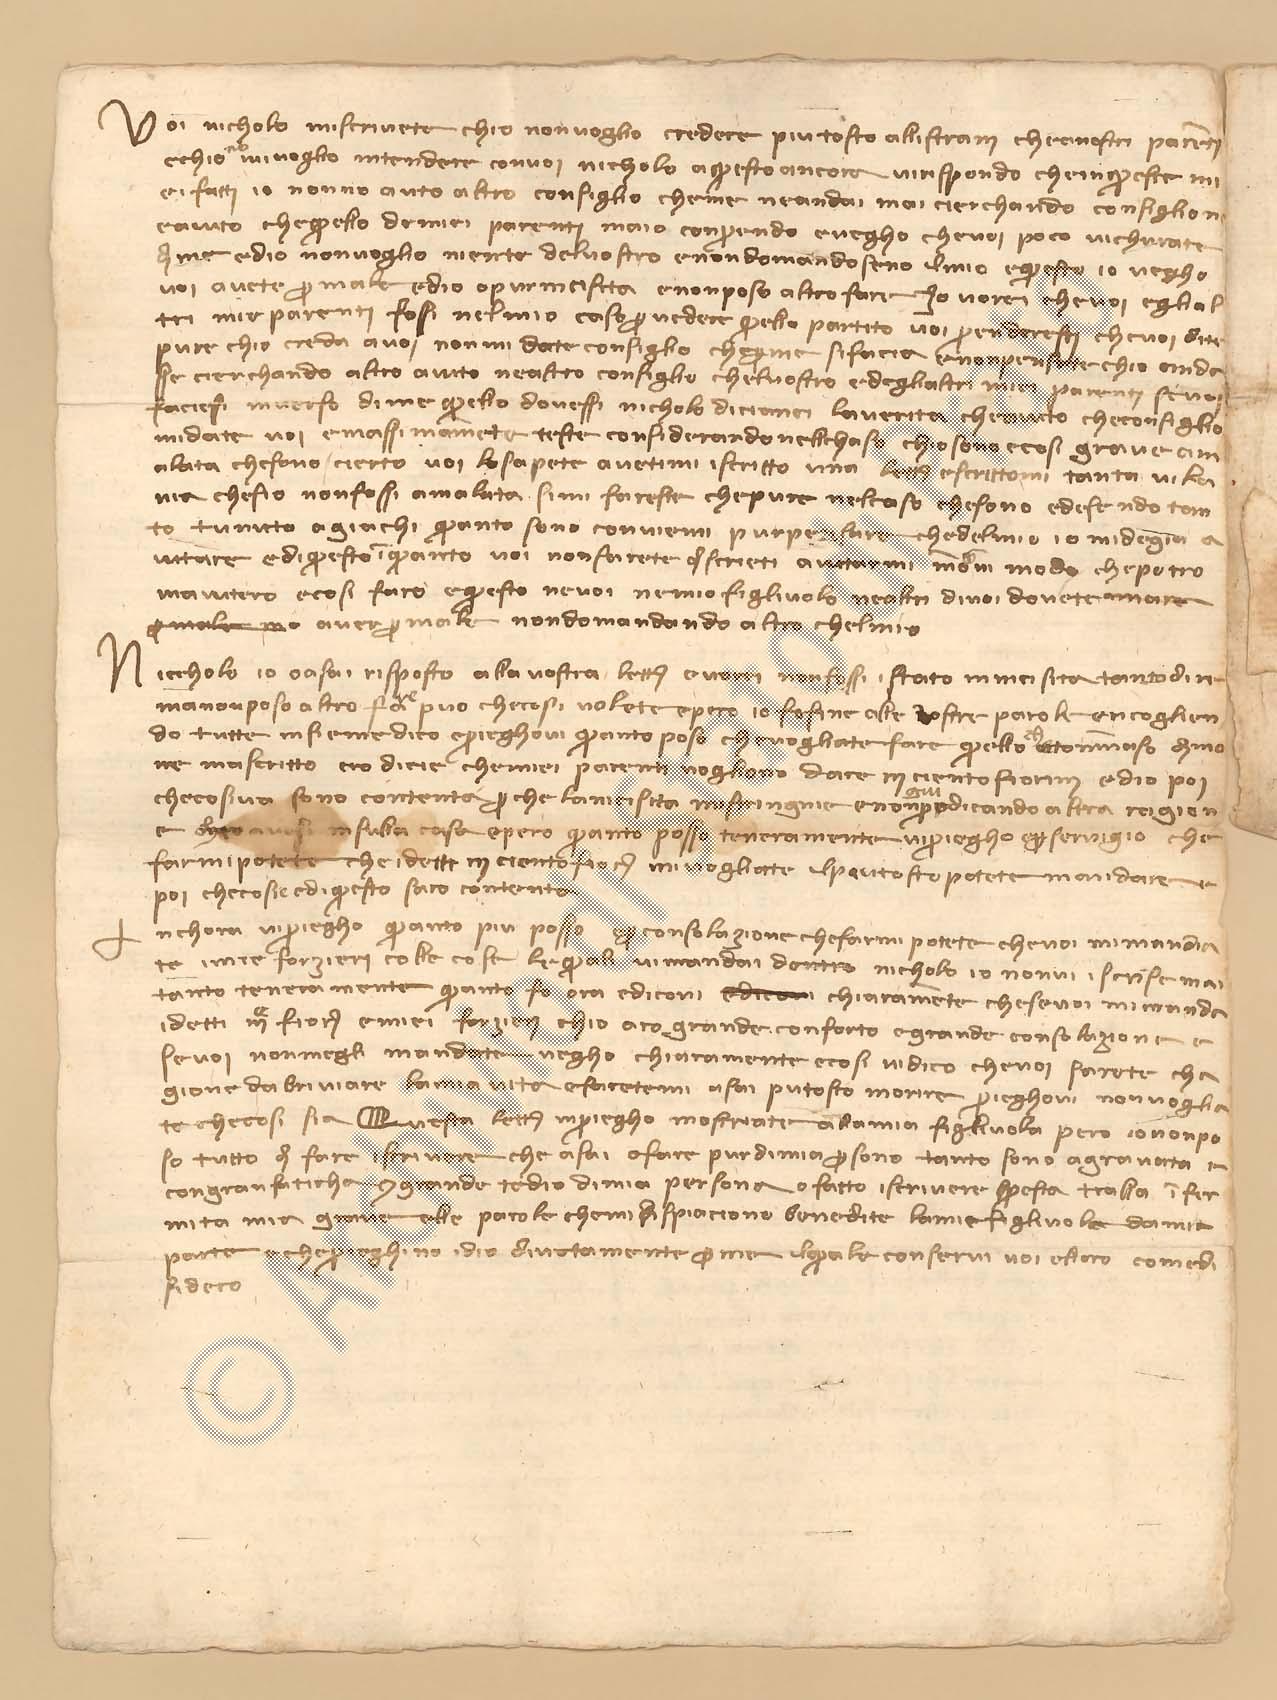 Voi nicholo miscrivete chio nonvoglio credere piu tosto allistrani che avostri parenti
echio no mivoglio intendere convoi nicholo a questo ancora virispondo cheinqueste mi
ei fatti io nonno auto altro consiglio cheme neandai mai cierchando consiglio ne
eaiuto chequello demiei parenti maio conprendo evegho chevoi poco vichurate
di me edio nonvoglio niente delvostro enondomando seno ilmio equesto io vegho
voi avete per male edio opur mcisitta enonposo altro fare Io vorei chevoi eglial
tri mie parenti fossi nelmio caso per vedere quello partito voi prenderesti chevoi dite
pure chio creda avoi nonmi date consiglio che per me sifacia enonpensate chio anda
sse cierchando altro aiuto nealtro consiglio chelvostro edeglialtri miei parenti sevoi
faciesi inverso dime quello dovessi nicholo dicianci laverita cheaiuto checonsiglio
midate voi emassimamente teste considerando nellchaso chiosono ecosi grave am
alata chesono cierto voi losapete avetimi iscritto una lettera escrittomi tanta villa
nia chesio nonfossi amalata simi fareste chepure nelcaso chesono edesendo tan
to tenuto agiachi quanto sono conviemi pur pensare chedelmio io midegia a
iutare ediquesto inquanto voi nonfarete discreti aiutarmi in modo chepotro
maiutero ecosi faro equesto nevoi nemio figlivolo nealtri divoi dovete
aver per male nondomandando altro chelmio
Niccholo io oasai risposto allavostra lettera evorei nonfossi istato tanto dire
manonposo altro fare puo checosi volete epero io fo fine alle vostre parole encoglien
do tutte insieme dico epriegho vi quanto poso chevogliate fare quello ch tommaso
ne mascritto cio dicie chemiei parenti voglono dare m ciento fiorini edio poi
checosiva sono contenta perche lamcisitta mistringnie
e insulla casa epero quanto posso teneramente vipriegho per servigio che
farmi potete che idetti m ciento fiorini mivogliate potete mandare e
poi checosie ediquesto saro contenta
Anchora vipriegho quanto piu posso per consolazione chefarmi potete chevoi mimandia
te imie forzieri colle cose le quali vimandai dentro nicholo io nonvi iscrise mai
tanto teneramente quanto fo ora edicovi edicovi chiaramente chesevoi mimanda
idetti fiorini emiei forzieri chio aro grande conforto egrande consolazione e
sevoi nonmegli mandate vegho chiaramente ecosi vidico chevoi sarete cha
gione dabriviare lamia vita efacetemi asai piutosto morire prieghovi nonvoglia
te checosi sia Questa lettera vipriegho mostriate allamia figlivola pero iononpo
so tutto di fare iscrivere che asai ofare purdimia persona tanto sono agravata e
congranfaticha e grande tedio dimia persona ofatto iscrivere questa tralla infer
mita mia grave elle parole chemi dispiaciono benedite lamie figlivole damia
parte e che prieghino idio divotamente per me ilquale conservi voi elloro comedi
sidero